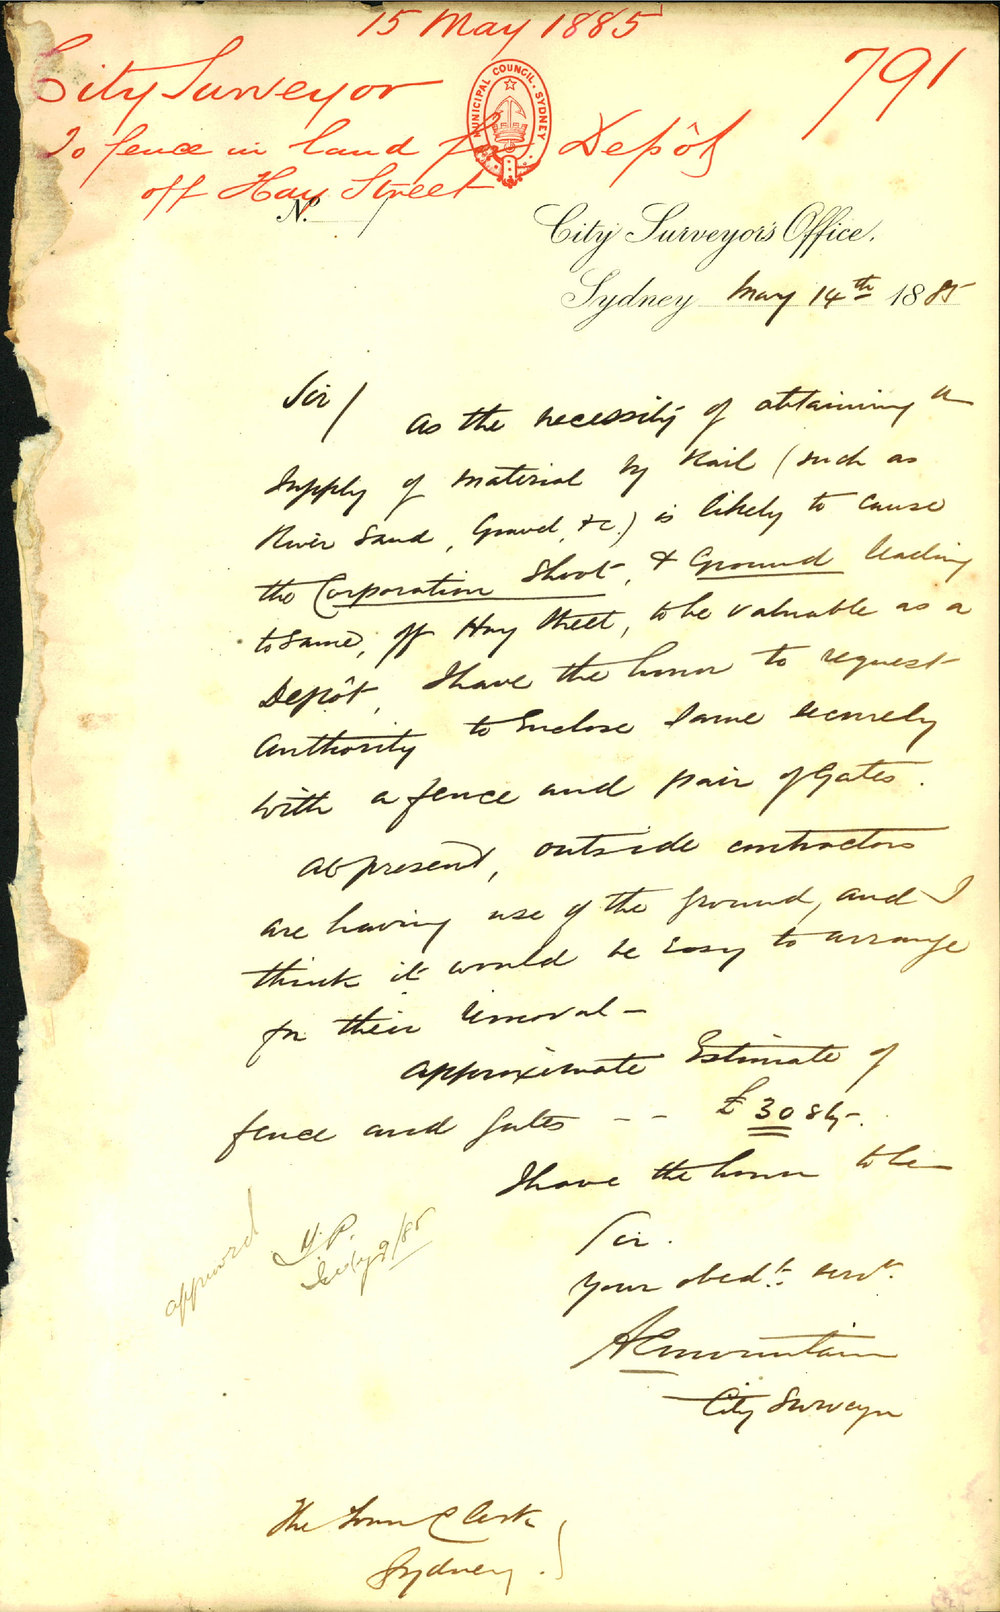 15 May 1885
City Surveyor
791
MUNICIPAL COUNCIL. SYDNEY
To fence in land for Depôt
off Hay Street
No.
City Surveyor's Office.
Sydney May 14th 1885
Sir/
As the necessity of obtaining a
supply of material by Rail (such as
River Sand, Gravel, &c.) is likely to cause
the Corporation Shoot, & Ground leading
to same, off Hay Street, to be valuable as a
Depôt, I have the honor to request
authority to enclose same securely
with a fence and pair of Gates.
At present, outside contractors
are having use of the ground, and I
think it would be easy to arrange
for their removal—
Approximate Estimate of
fence and gates -- £30
I have the honor to be
Sir.
Your obedt. servt.
A C Mountain
City Surveyor
approved
The Town Clerk
Sydney.